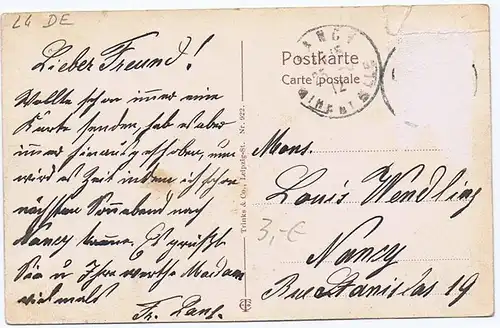 L4 DE
Lieber Freund!
Wollte schon immer eine
Karte senden, hab es aber
immer hinausgeschoben, nun
wird es Zeit indem ich schon
nächsten Sonnabend nach
Nancy komme. Es grüßt
Sie u Ihre werthe Madam
vielmals
Fr.
Trinks & Co., Leipzig-St. Nr. 922.
Postkarte
Carte postale
NANCY
12
Mons.
Louis Wendling
3,-€
Nancy
Rue Stanislas 19